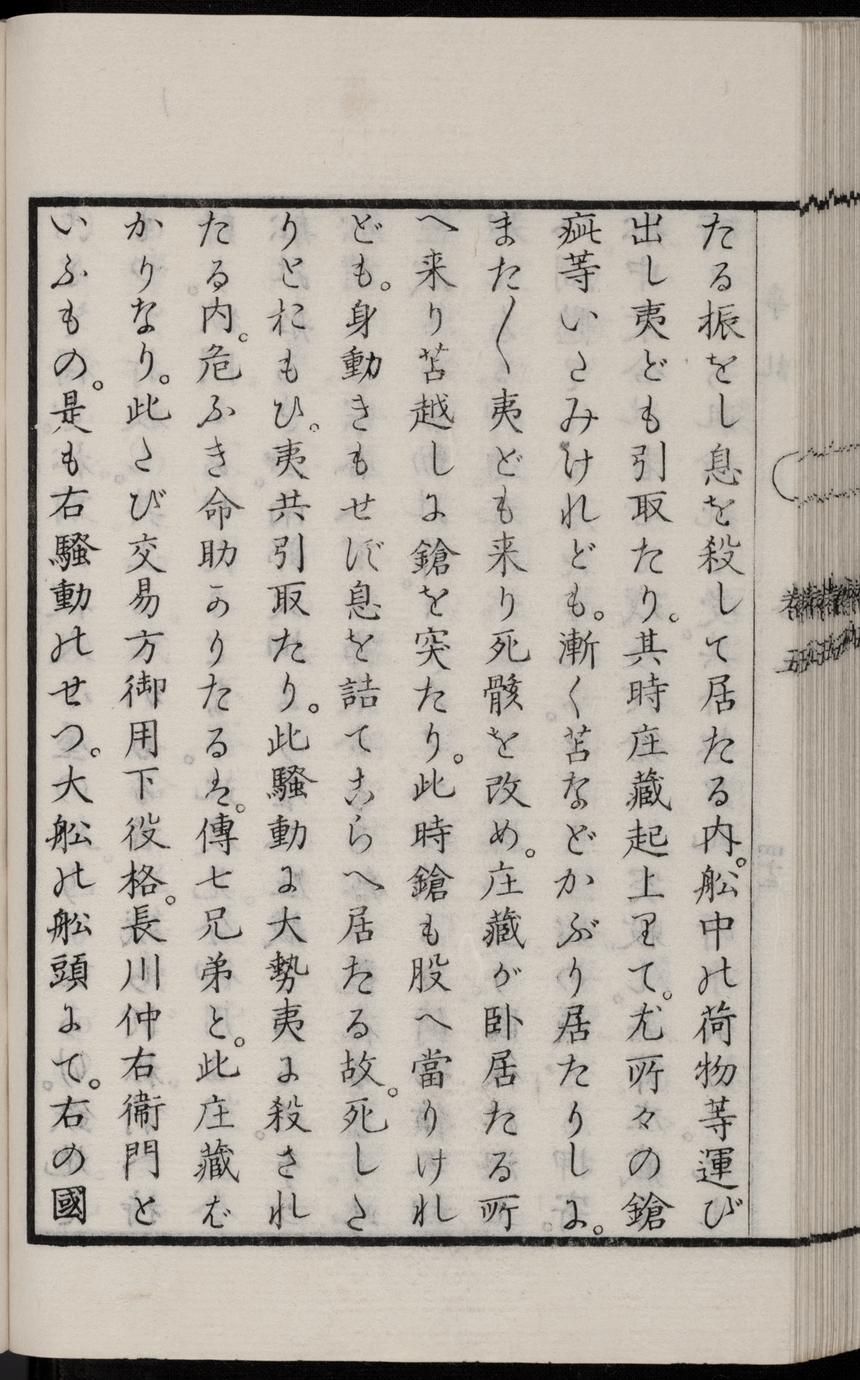 たる振をし息を殺して居たる内。舩中の荷物等運び
出し夷ども引取たり。其時庄藏起上りて。尤所々の鎗
疵等いたみけれども。漸く苫などかぶり居たりしに。
また〱夷ども来り死骸を改め。庄藏が卧居たる所
へ来り苫越しに鎗を突たり。此時鎗も股へ當りけれ
ども。身動きもせず息を詰てこらへ居たる故。死した
りとおもひ。夷共引取たり。此騒動に大勢夷に殺され
たる内。危ふき命助かりたるは。傳七兄弟と。此庄藏ば
かりなり。此たび交易方御用下役格。長川仲右衞門と
いふもの。是も右騒動のせつ。大舩の舩頭にて。右の國